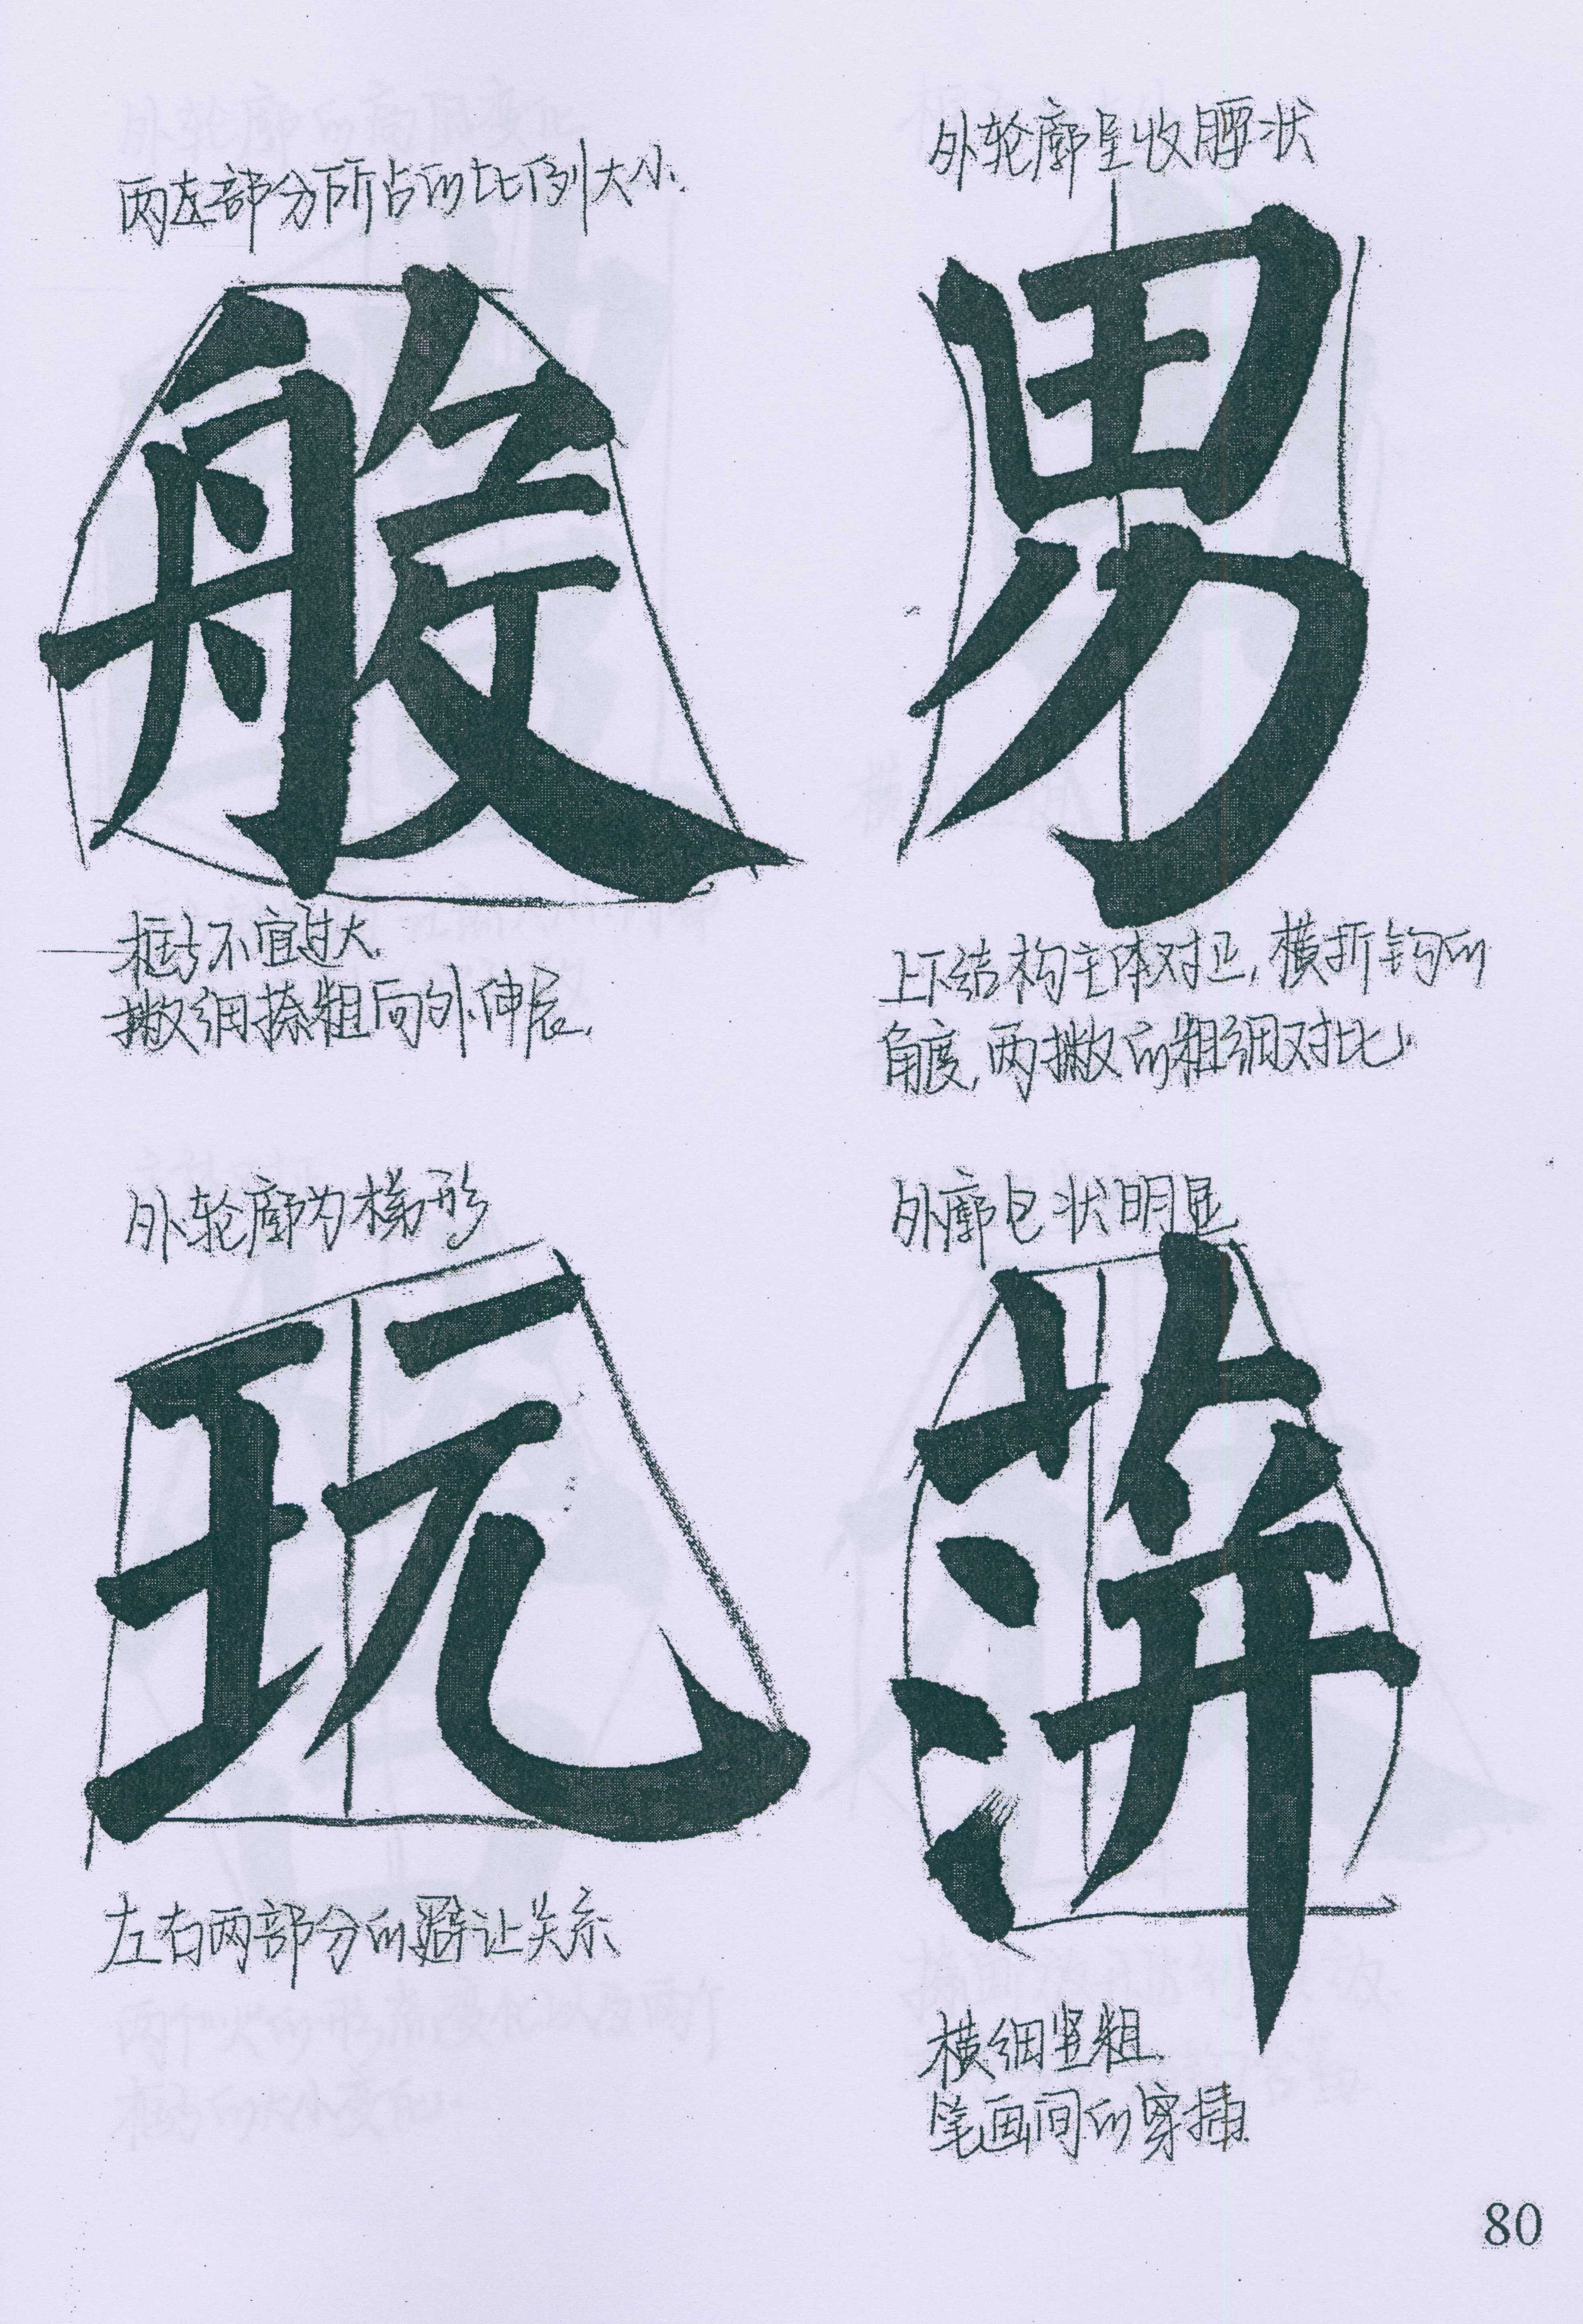 两左部分所占的比例大小.
般
框不宜过大.
撇细捺粗向外伸展.
外轮廓呈收腰状
男
上下结构主体对正,横折钩的
角度,两撇的粗细对比.
外轮廓为梯形
玩
左右两部分的避让关系
外廓包状明显
蓱
横细竖粗.
笔画间的穿插.
80